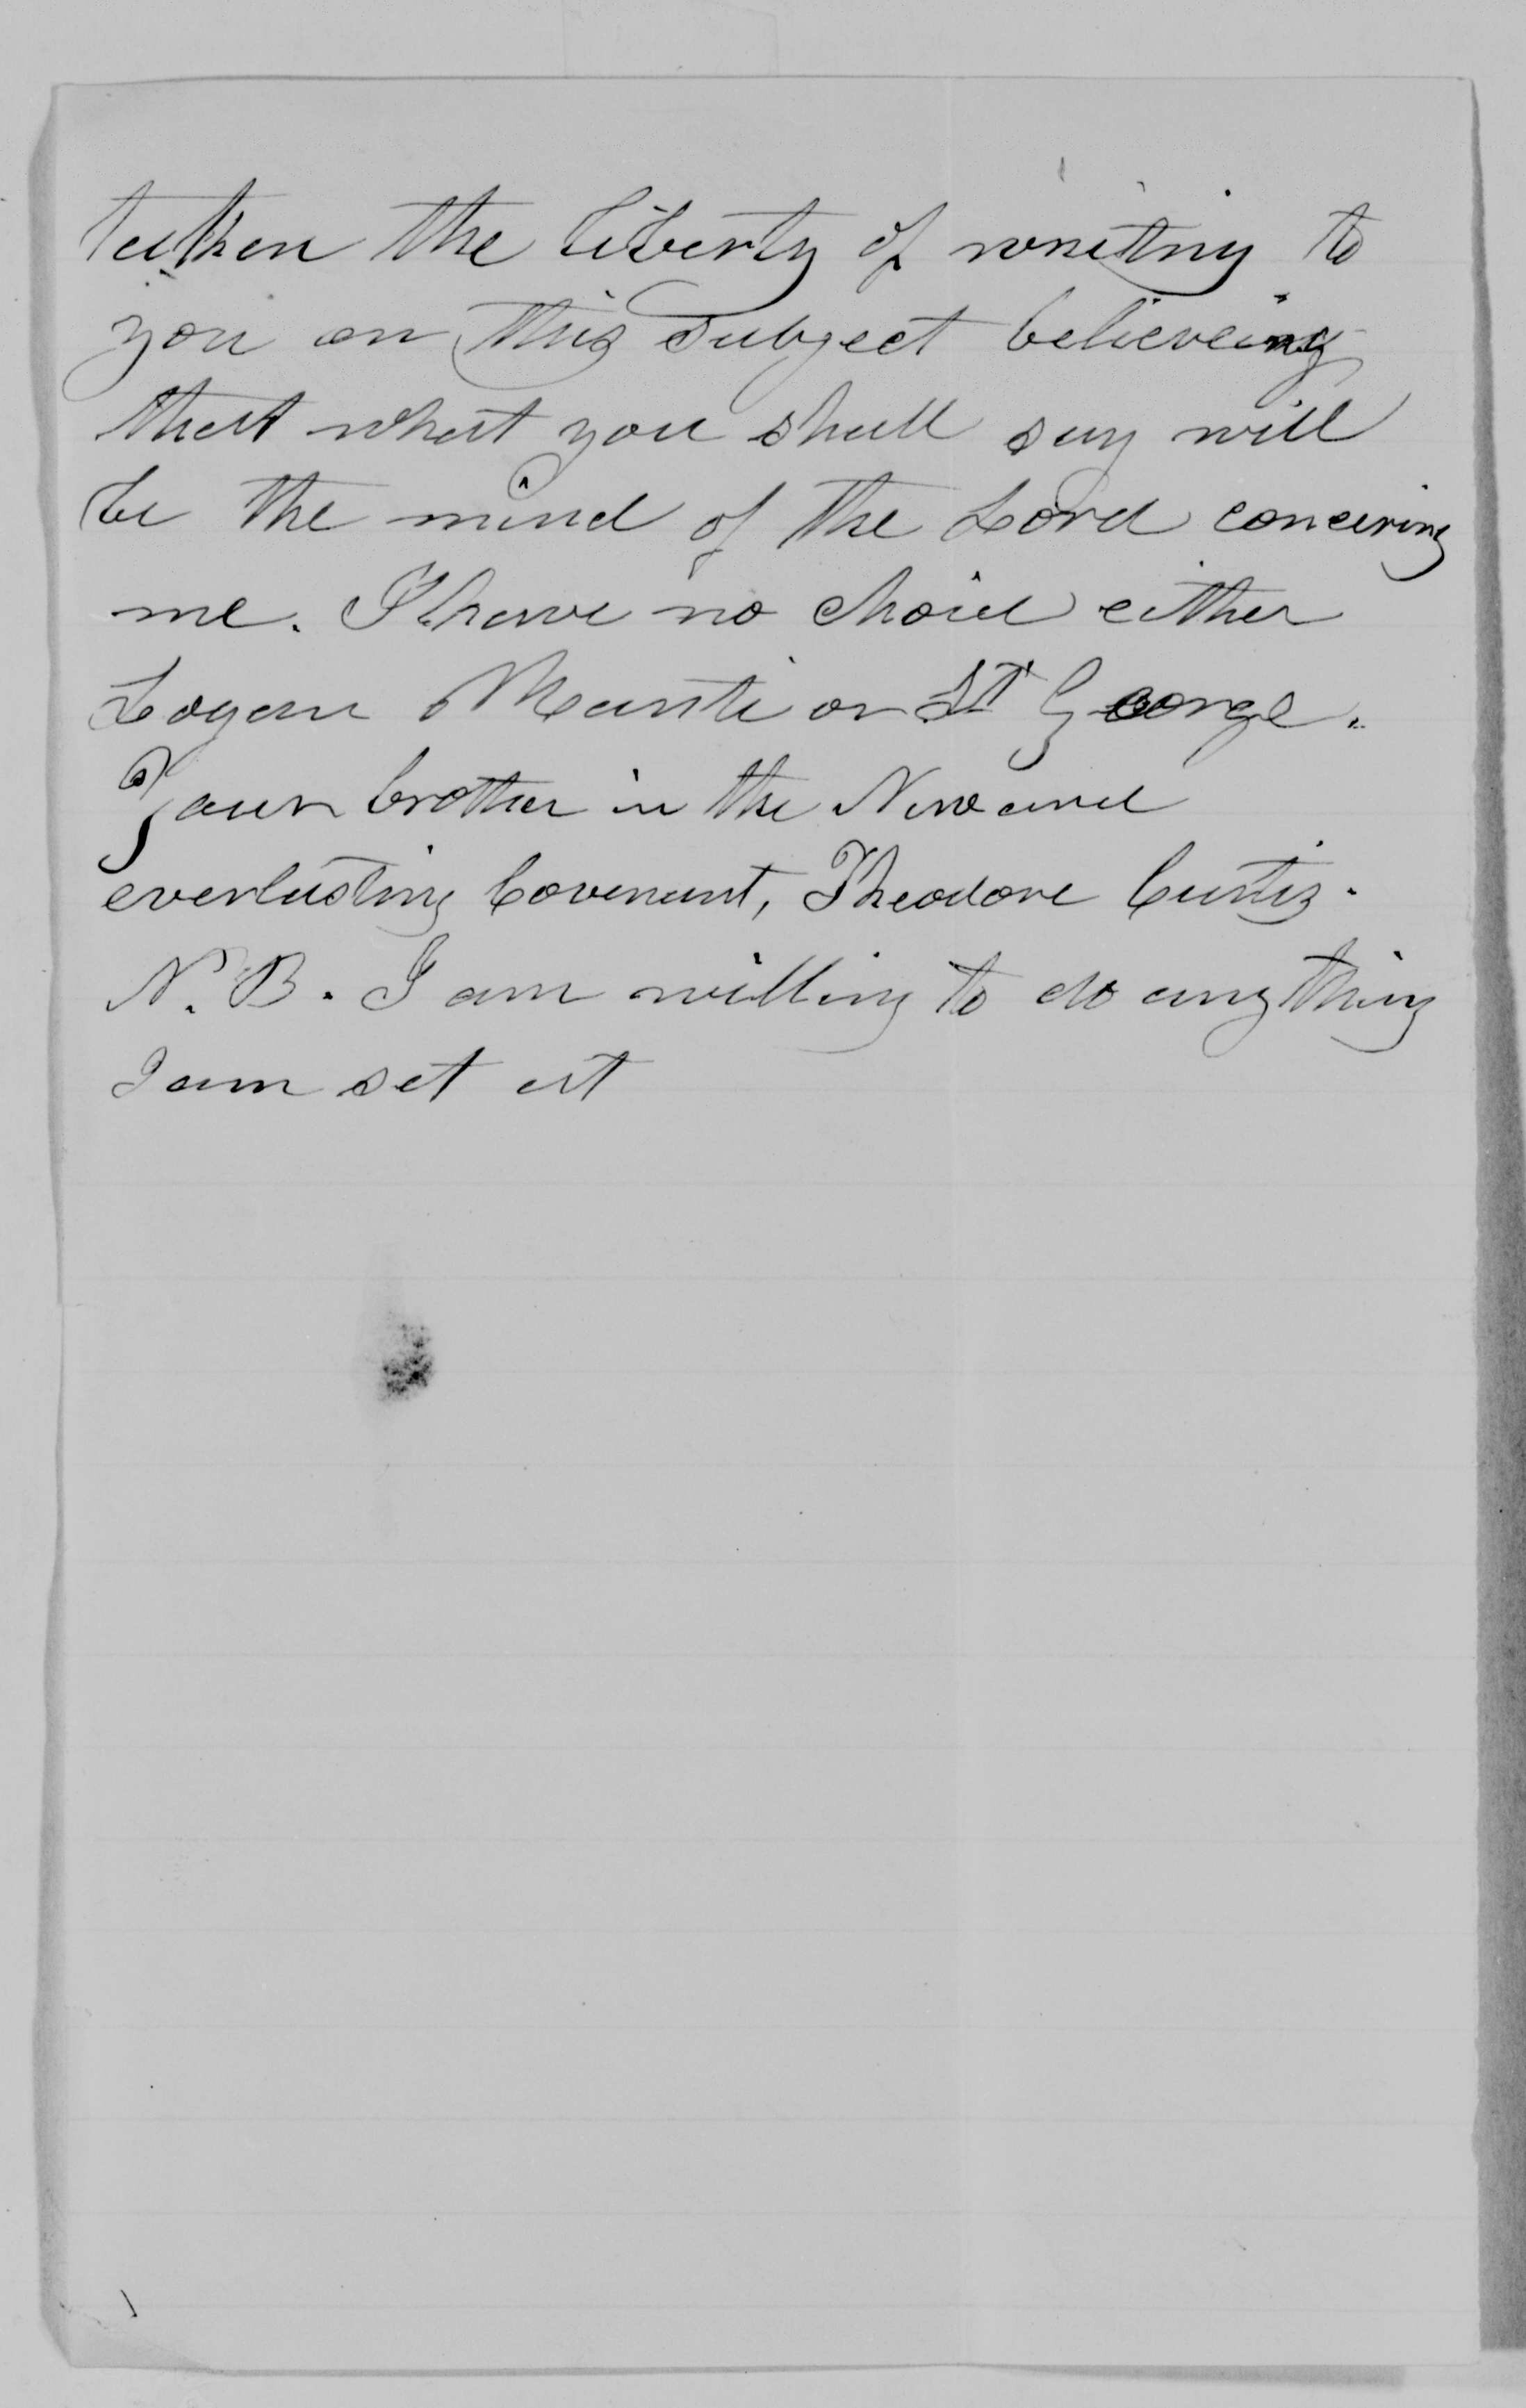 taken the liberty of writing to
you on this subject believeing
that what you shall say will
be the mind of the Lord concerning
me. I have no choice either
Logan Manti or St George.
Your brother in the New and
everlasting Covenant, Theodore Curtis.
N. B. I am willing to do any thing
I am set at